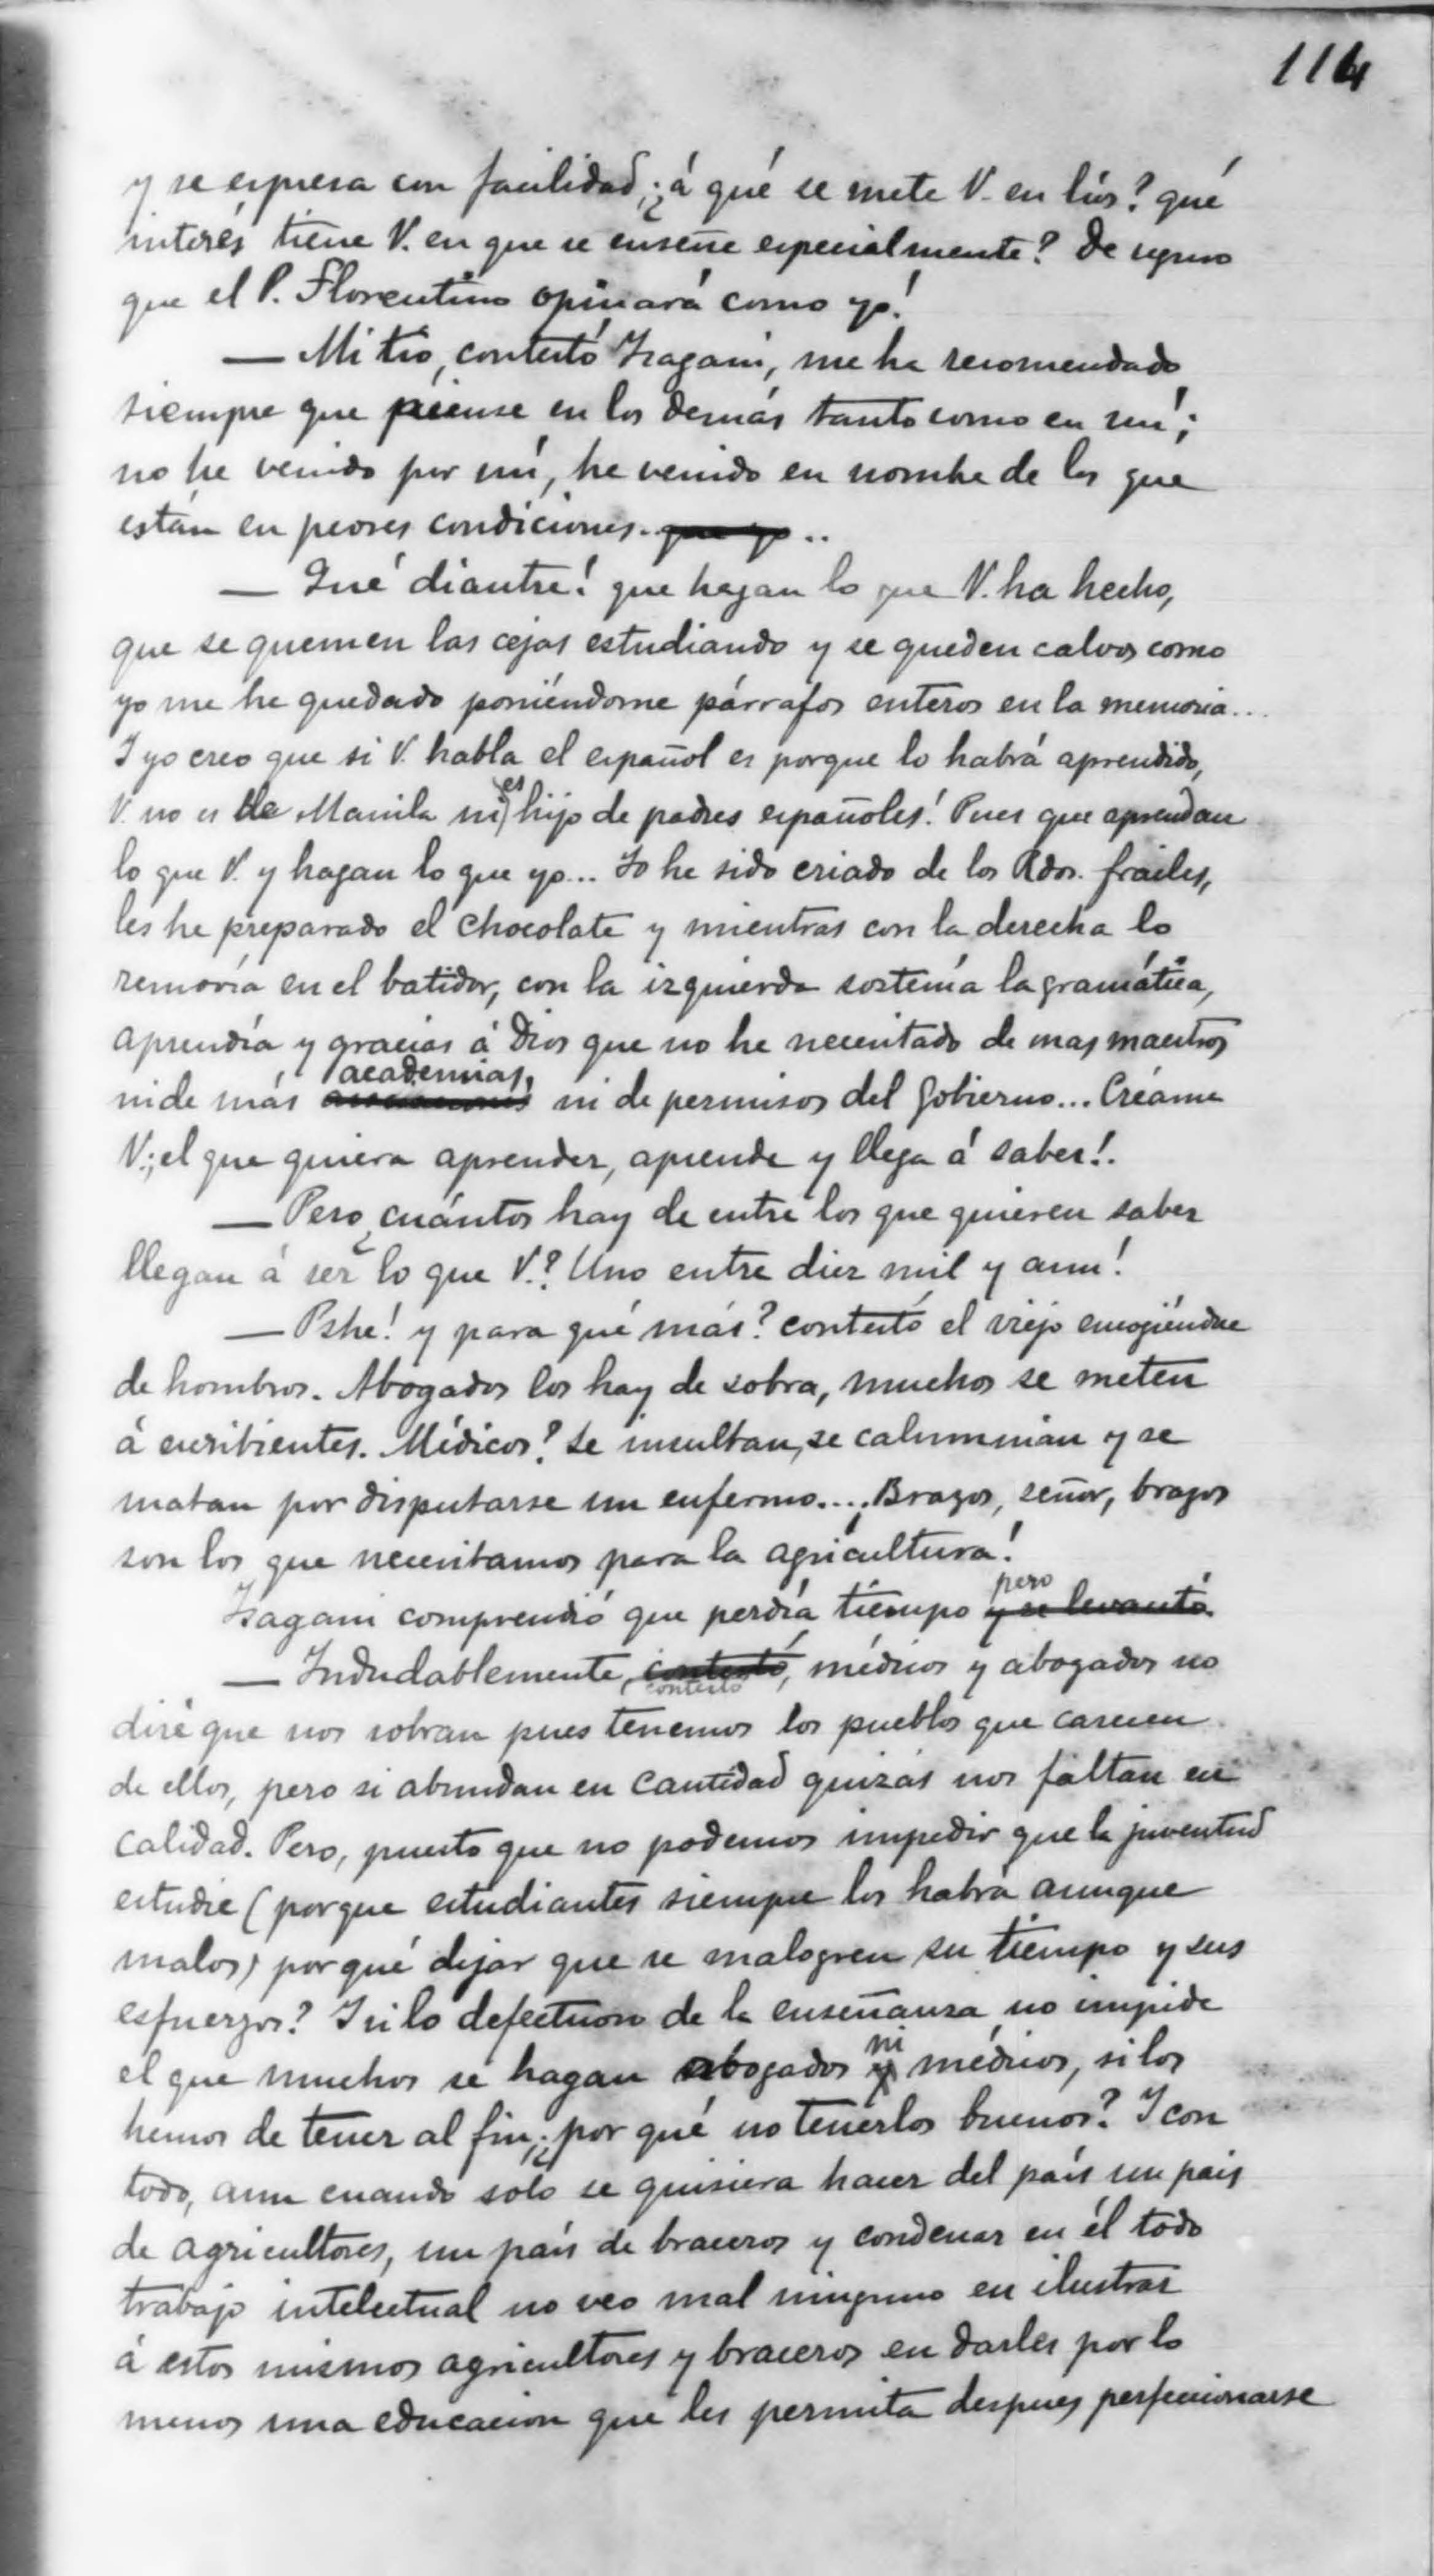 114
y se espresa con facilidad, ¿á qué se mete V. en líos? qué
interés tiene V. en que se enseñe especialmente? De seguro
que el P. Florentino opinará como yo!
— Mi tio, contestó Isagani, me ha recomendado
siempre que piense en los demás tanto como en mí;
no he venido por mí, he venido en nombre de los que
están en peores condiciones. que yo ..
— Qué diantre! que hagan lo que V. ha hecho,
que se quemen las cejas estudiando y se queden calvos como
yo me he quedado poniéndome párrafos enteros en la memoria...
Y yo creo que si V. habla el español es porque lo habrá aprendido,
V. no es de Manila ni es hijo de padres españoles! Pues que aprendan
lo que V. y hagan lo que yo... Yo he sido criado de los Rdos. frailes,
les he preparado el chocolate y mientras con la derecha lo
removía en el batidor, con la izquierda sostenía la gramática,
aprendía y gracias á Dios que no he necesitado de mas maestros
ni de más academias, ni de permisos del Gobierno... Créame
V.; el que quiera aprender, aprende y llega á saber!.
— Pero ¿cuántos hay de entre los que quieren saber
llegan á ser lo que V.? Uno entre diez mil y aun!
— Pshe! y para qué más? contestó el viejo encogiéndose
de hombros. Abogados los hay de sobra, muchos se meten
á escribientes. Médicos? Se insultan, se calumnian y se
matan por disputarse un enfermo.... Brazos, señor, brazos
son los que necesitamos para la agricultura!
Isagani comprendió que perdía tiempo pero y se levantó.
— Indudablemente, contestó, contestó médicos y abogados no
diré que nos sobran pues tenemos los pueblos que carecen
de ellos, pero si abundan en cantidad quizás nos faltan en
calidad. Pero, puesto que no podemos impedir que la juventud
estudie (porque estudiantes siempre los habrá aunque
malos) por qué dejar que se malogren su tiempo y sus
esfuerzos? Y si lo defectuoso de la enseñanza no impide
el que muchos se hagan abogados ni y médicos, si los
hemos de tener al fin, ¿por qué no tenerlos buenos? Y con
todo, aun cuando solo se quisiera hacer del país un país
de agricultores, un país de braceros y condenar en él todo
trabajo intelectual no veo mal ninguno en ilustrar
á estos mismos agricultores y braceros en darles por lo
menos una educacion que les permita despues perfeccionarse